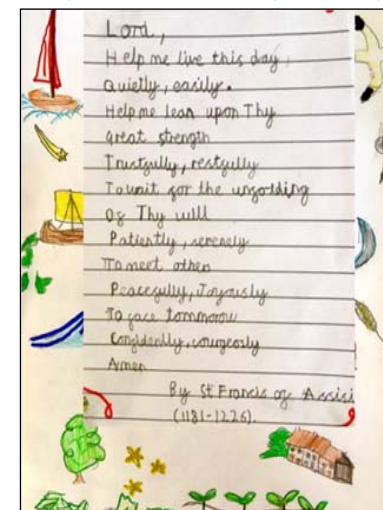 Lord,
Help me live this day,
Quietly, easily.
Help me lean upon Thy
great strength
Trustfully, restfully
To wait for the unfolding
Of Thy will
Patiently, serenely
To meet others
Peacefully, Joyously
To face tommorow
Confidently, courgeosly
Amen
By St Francis of Assisi
(1181-1226).